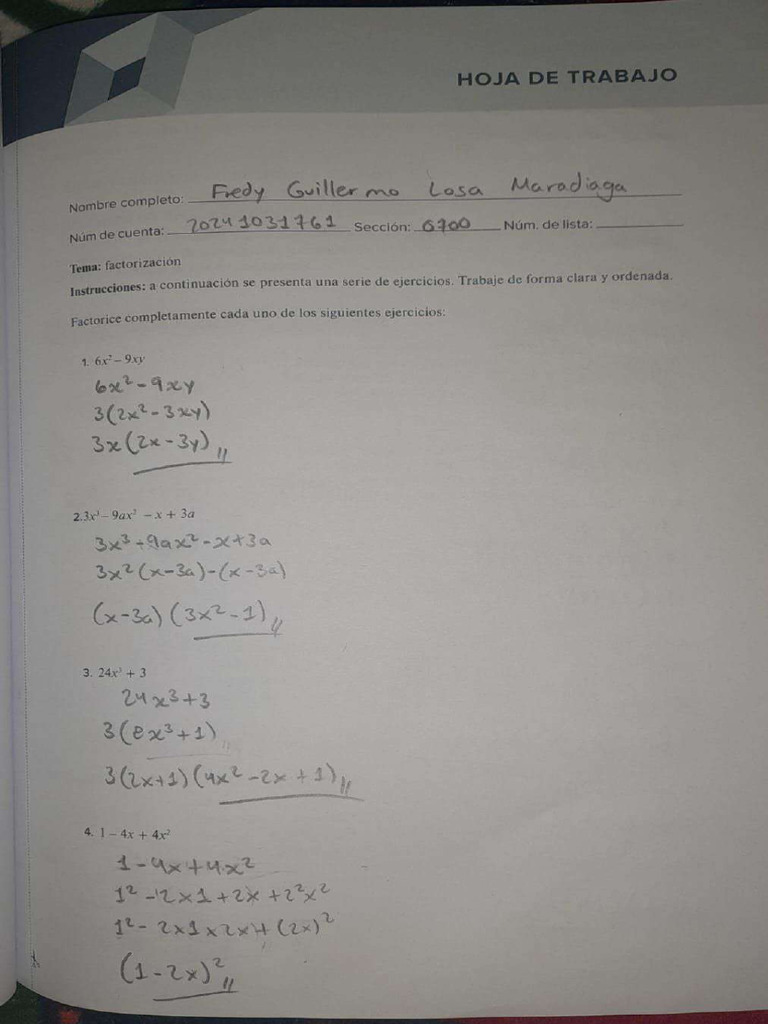 HOJA DE TRABAJO
Nombre completo: Fredy Guillermo Losa Maradiaga
Núm de cuenta: 20241031761 Sección: 0700 Núm. de lista:
Tema: factorización
Instrucciones: a continuación se presenta una serie de ejercicios. Trabaje de forma clara y ordenada.
Factorice completamente cada uno de los siguientes ejercicios:
1. 6x² – 9xy
6x² - 9xy
3(2x² - 3xy)
3x(2x - 3y) //
2. 3x³ – 9ax² – x + 3a
3x³ - 9ax² - x + 3a
3x²(x - 3a) - (x - 3a)
(x - 3a) (3x² - 1) //
3. 24x³ + 3
24x³ + 3
3(8x³ + 1)
3(2x+1)(4x² - 2x + 1) //
4. 1 – 4x + 4x²
1 - 4x + 4x²
1² - 2x1 + 2x + 2²x²
1² - 2x1x2x + (2x)²
(1 - 2x)² //